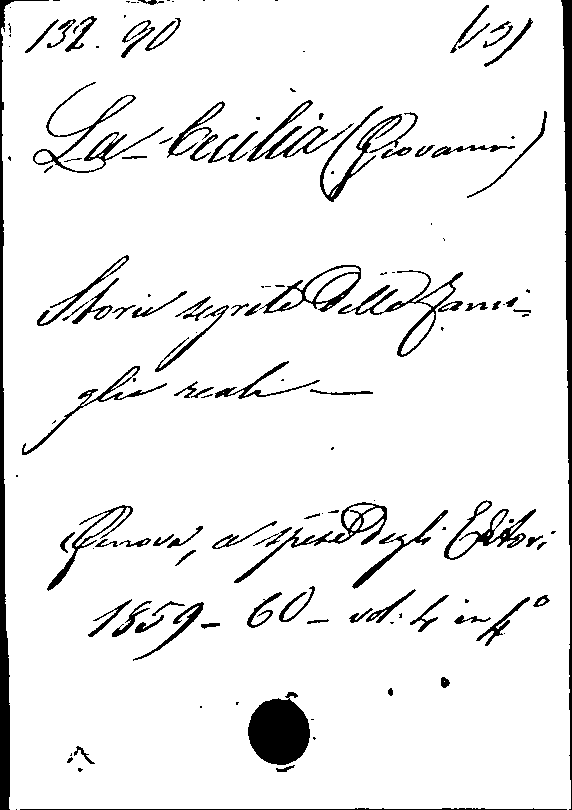 132. 90 (13)
La-Cecilia (Giovanni)
Storie segrete delle Fami-
glie reali —
Genova, a spese degli Editori
1859-60 - vol: 4 in 4°